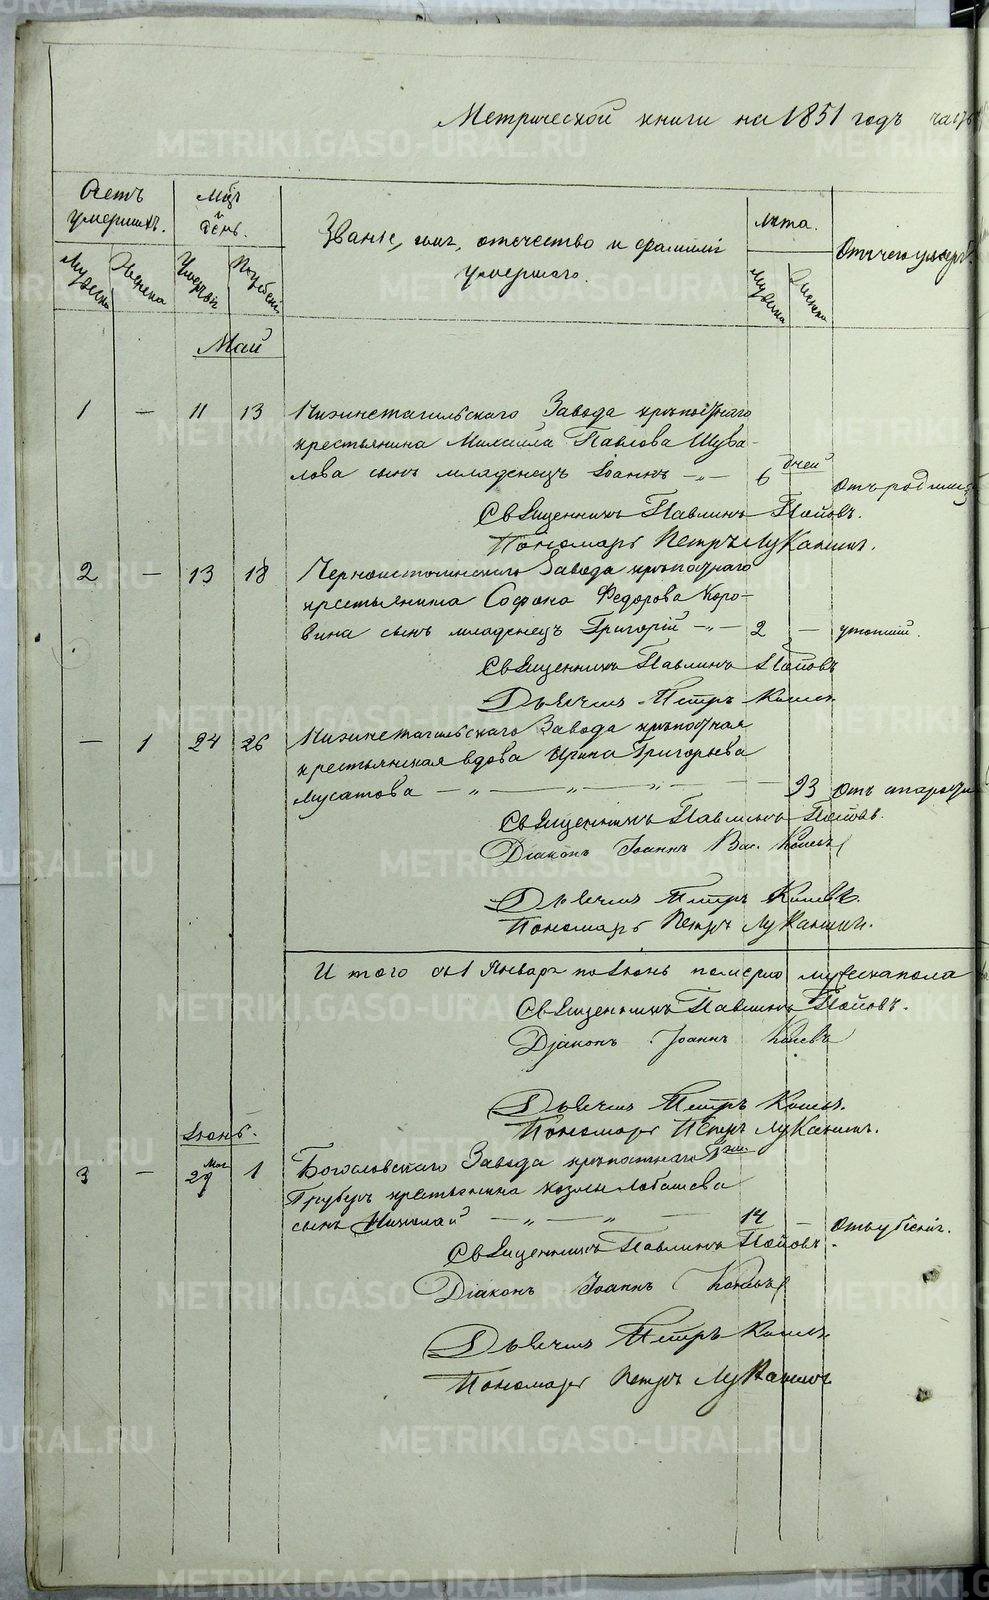 Метрической книги на 1851 годъ часть
Счетъ умершихъ.
Мѣс. и день.
Званіе, имя, отечество и фамилія
умершаго.
Лѣта.
Отъ чего умеръ
Мужеска
Женска
Умерты
Погребені
Мужеска
Женска
Май
1 — 11 13 Нижнетагильскаго Завода крѣпостнаго
крестьянина Михаила Павлова Шува-
лова сынъ младенецъ Іоаннъ — „ — 6 дней Отъ родимца
Священникъ Павлинъ Поповъ.
Пономарь Петръ Луканинъ.
2 — 13 18 Черноисточинскаго Завода крѣпостнаго
крестьянина Софона Федорова Коро-
вина сынъ младенецъ Григорій — „ — 2 — утопшій.
Священникъ Павлинъ Поповъ
Дьячекъ Петръ
— 1 24 26 Нижнетагильскаго Завода крѣпостная
крестьянская вдова Ирина Григорьева
Мусатова — „ — „ — „ — — 93 Отъ старости
Священникъ Павлинъ Поповъ.
Діаконъ Іоаннъ Вас.
Дьячекъ Петръ
Пономарь Петръ Луканинъ.
И того съ 1 Января по Іюнь померло мужеска пола
Священникъ Павлинъ Поповъ.
Діаконъ Іоаннъ
Дьячекъ Петръ
Пономарь Петръ Луканинъ.
Іюнь.
3 — Мая 29 1 Богословскаго Завода крѣпостнаго Гжи
Груберъ крестьянина Козмы Лобашева
сынъ Николай — „ — „ — 14 — Отъ убенія.
Священникъ Павлинъ Поповъ.
Діаконъ Іоаннъ
Дьячекъ Петръ
Пономарь Петръ Луканинъ
METRIKI.GASO-URAL.RU